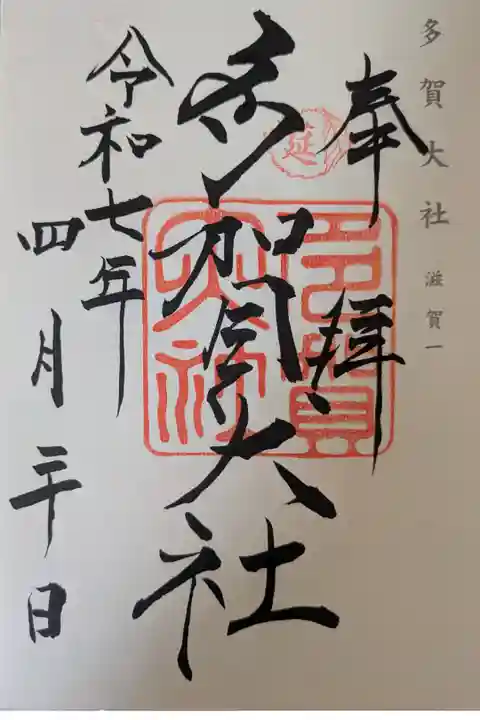 多賀大社 滋賀一
奉拝
延
多賀大社
多賀大社
令和七年
四月三十日